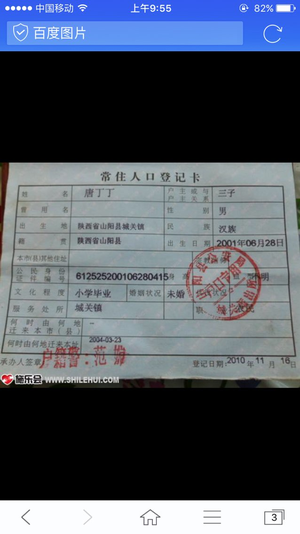 中国移动 上午9:55 82%
百度图片
常住人口登记卡
姓名 唐丁丁 户主或与户主关系 三子
曾用名 性别 男
出生地 陕西省山阳县城关镇 民族 汉族
籍贯 陕西省山阳县 出生日期 2001年06月28日
本市(县)其他住址
公民身份证件编号 612525200106280415
文化程度 小学毕业 婚姻状况 未婚
服务处所 城关镇
何时由何地迁来本市(县) -
何时由何地迁来本址 2004-03-23
承办人签章: 户籍警: 登记日期: 2010年11月18日
施乐会 WWW.SHILEHUI.COM
3